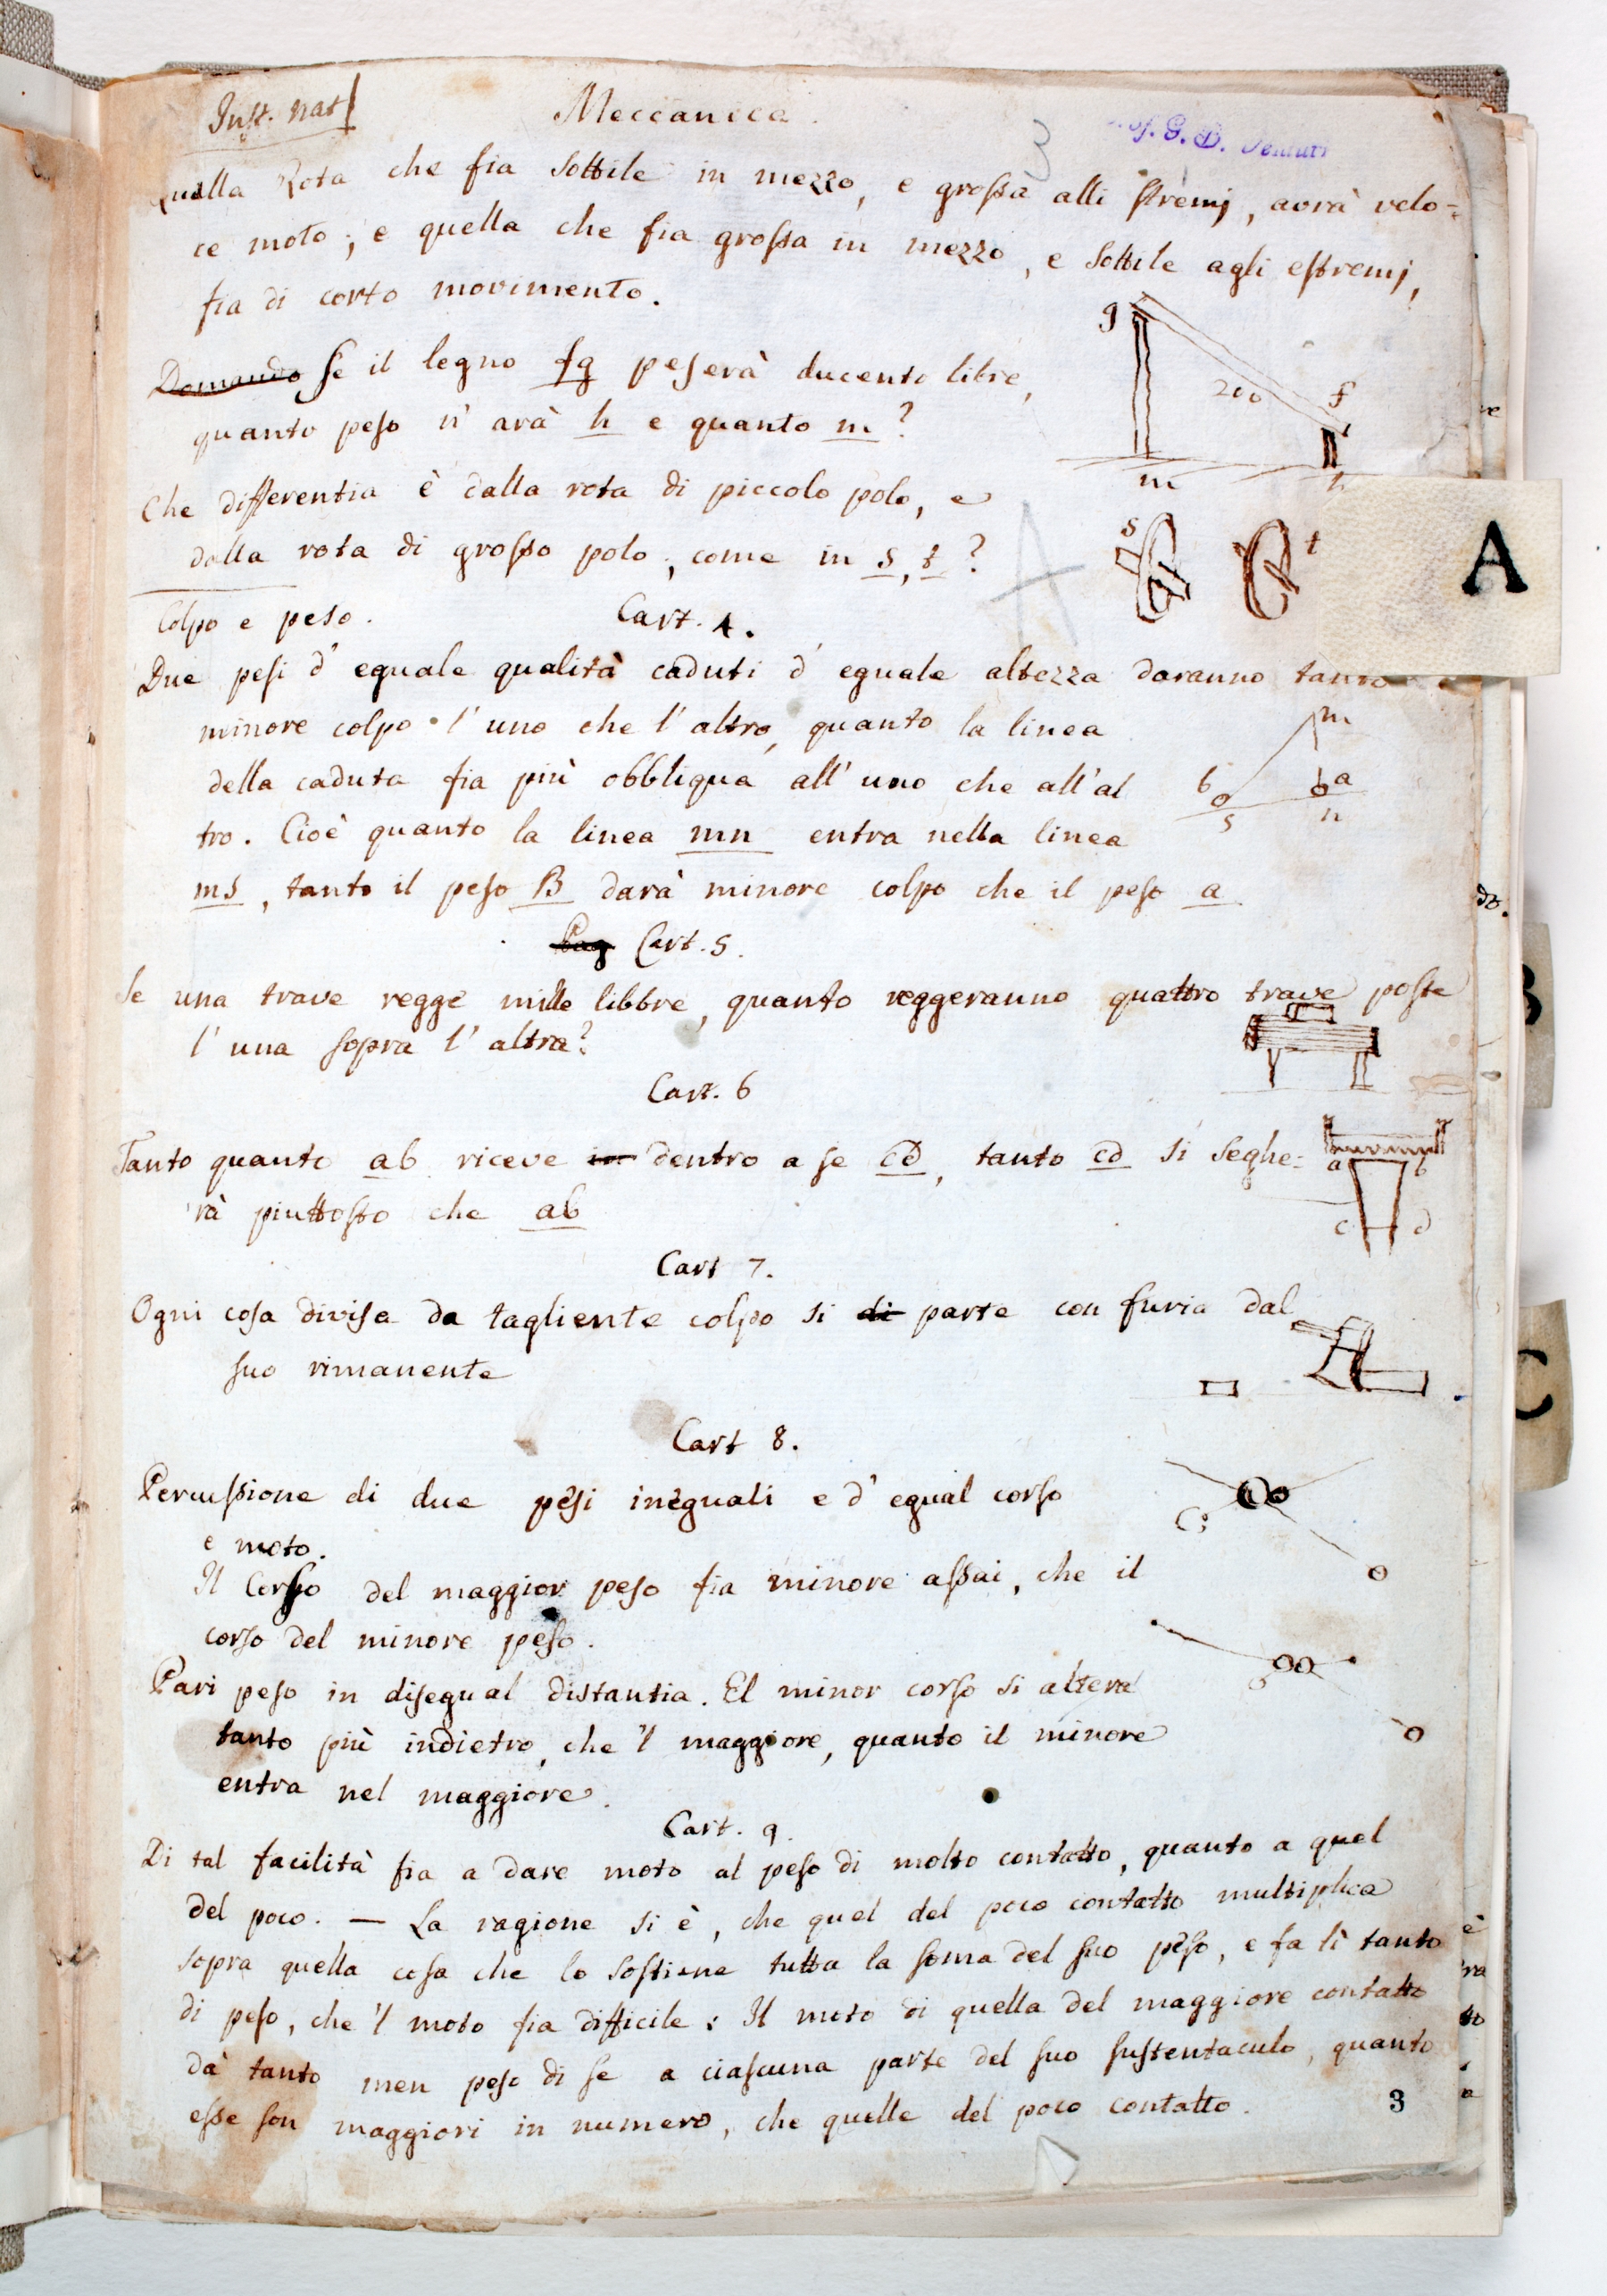 Inst. nat
Meccanica.
3
Prof. G. B. Venturi
Quella Rota che fia sottile in mezzo, e grossa alli stremj, avrà velo-
ce moto; e quella che fia grossa in mezzo, e sottile agli estremj,
fia di corto movimento.
Domando Se il legno fg peserà ducento libre,
quanto peso n' arà h e quanto m?
g
200
f
m
h
Che differentia è dalla rota di piccolo polo, e
dalla rota di grosso polo, come in s, t?
s
t
A
A
Colpo e peso. Cart. 4.
Due pesi d' eguale qualità caduti d' eguale altezza daranno tanto
minore colpo l' uno che l' altro, quanto la linea
della caduta fia più obbliqua all' uno che all' al
tro. Cioè quanto la linea mn entra nella linea
ms, tanto il peso B darà minore colpo che il peso a
m
b
a
s
n
Pag Cart. 5.
Se una trave regge mille libbre, quanto reggeranno quattro trave poste
l' una sopra l' altra?
Cart. 6
Tanto quanto ab riceve in dentro a se cd, tanto cd si seghe-
rà piuttosto che ab
a
b
c
d
Cart 7.
Ogni cosa divisa da tagliente colpo si di parte con furia dal
suo rimanente
C
Cart 8.
Percussione di due pesi ineguali e d' egual corso
e moto.
Il Corso del maggior peso fia minore assai, che il
corso del minore peso.
Pari peso in disegual distantia. El minor corso si altera
tanto più indietro, che 'l maggiore, quanto il minore
entra nel maggiore.
Cart. 9.
Di tal facilità fia a dare moto al peso di molto contatto, quanto a quel
del poco. — La ragione si è, che quel del poco contatto multiplica
sopra quella cosa che lo sostiene tutta la soma del suo peso, e fa lì tanto
di peso, che 'l moto fia difficile: Il moto di quella del maggiore contatto
dà tanto men peso di se a ciascuna parte del suo sustentaculo, quanto
esse son maggiori in numero, che quelle del poco contatto.
3